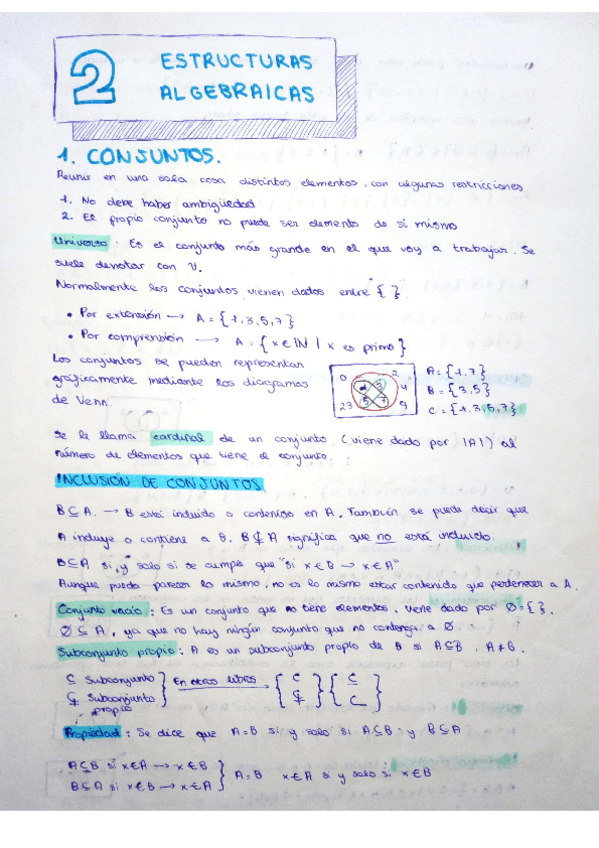 2 ESTRUCTURAS
ALGEBRAICAS
1. CONJUNTOS.
Reunir en una sola cosa distintos elementos, con algunas restricciones
1. No debe haber ambigüedad
2. El propio conjunto no puede ser elemento de sí mismo
Universo: Es el conjunto más grande en el que voy a trabajar. Se
suele denotar con U.
Normalmente los conjuntos vienen dados entre { }.
• Por extensión → A = {1,3,5,7}
• Por comprensión → A = {x ∈ ℕ | x es primo}
Los conjuntos se pueden representar
gráficamente mediante los diagramas
de Venn.
0 2 4 9 23 5 7
A = {1,7}
B = {3,5}
C = {1,3,5,7}
Se le llama cardinal de un conjunto (viene dado por |A|) al
número de elementos que tiene el conjunto.
INCLUSIÓN DE CONJUNTOS
B ⊆ A. → B está incluido o contenido en A. También se puede decir que
A incluye o contiene a B. B ⊈ A significa que no está incluido.
B ⊆ A si, y solo si se cumple que "si x ∈ B → x ∈ A"
Aunque pueda parecer lo mismo, no es lo mismo estar contenido que pertenecer a A.
Conjunto vacío: Es un conjunto que no tiene elementos. Viene dado por Ø = { }.
Ø ⊆ A, ya que no hay ningún conjunto que no contenga a Ø.
Subconjunto propio: A es un subconjunto propio de B si A ⊆ B, A ≠ B.
⊆ Subconjunto } En otros libros { ⊂ } { ⊆ }
⊊ Subconjunto propio { ⊊ } { ⊂ }
Propiedad: Se dice que A = B si y solo si A ⊆ B y B ⊆ A
A ⊆ B si x ∈ A → x ∈ B } A = B x ∈ A si y solo si x ∈ B
B ⊆ A si x ∈ B → x ∈ A